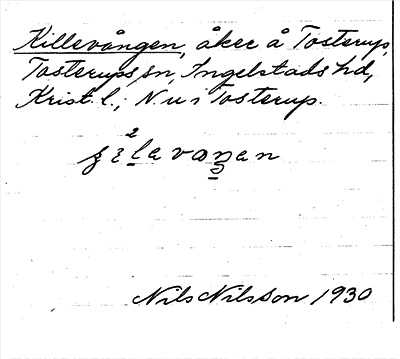 Killevången, åker å Tosterup,
Tosterups sn, Ingelstads hd,
Krist. l.; N. u i Tosterup.
Nils Nilsson 1930